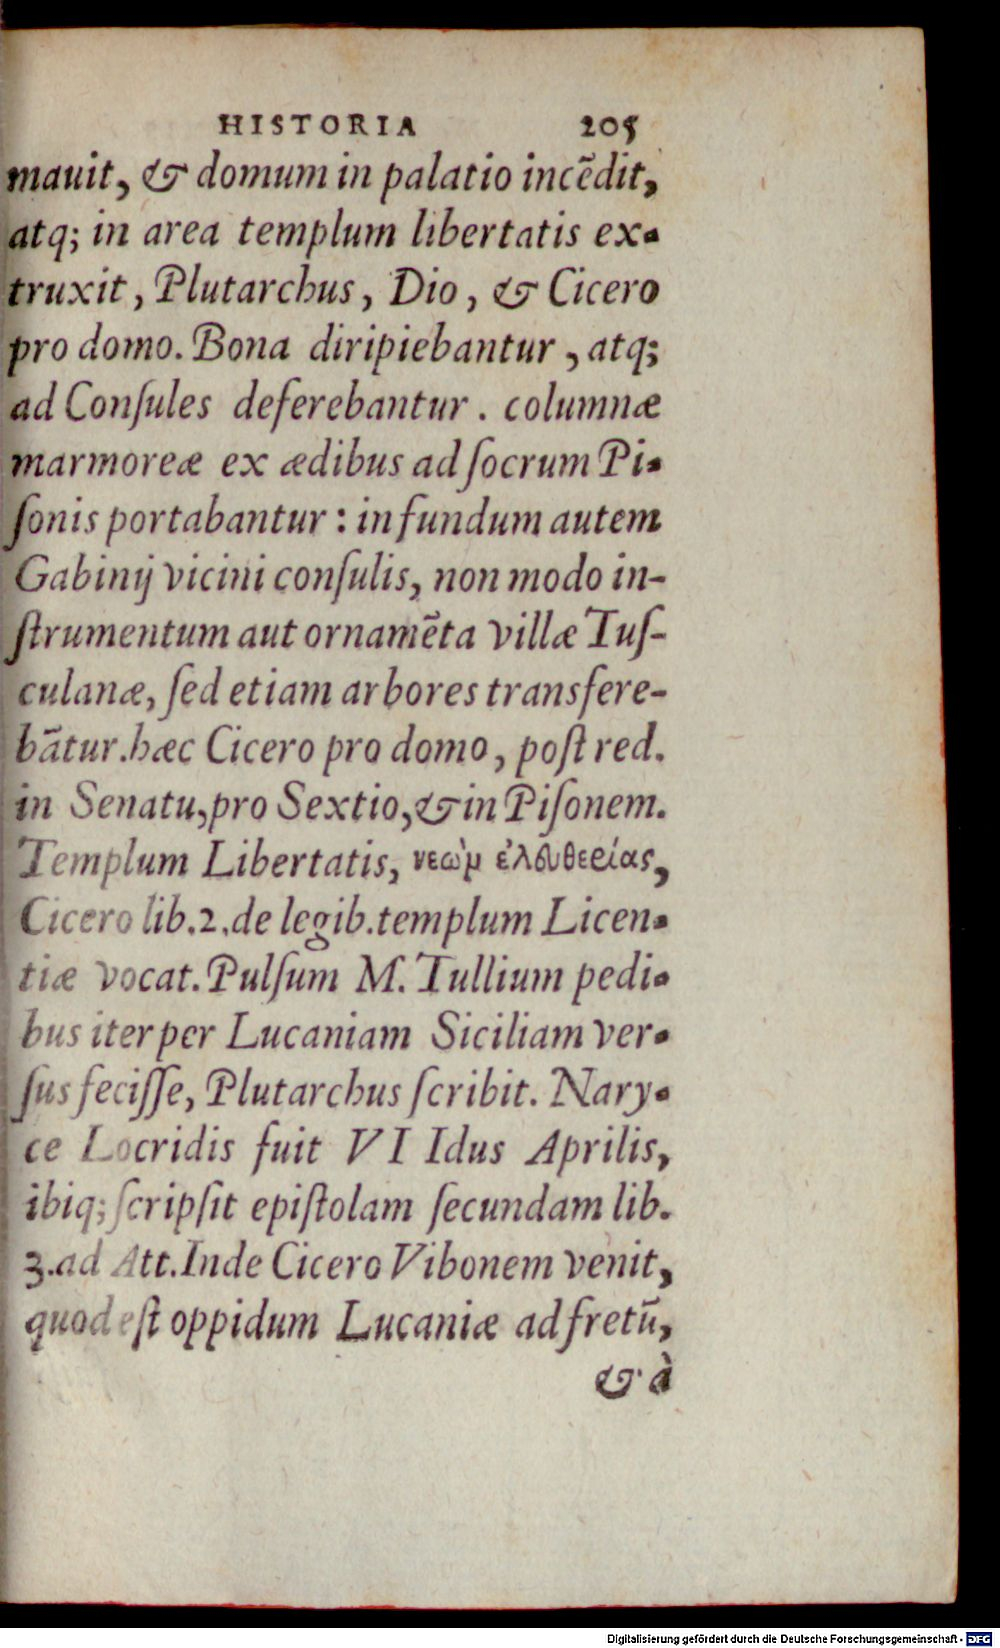 HISTORIA 205
mauit, & domum in palatio incẽdit,
atq; in area templum libertatis ex-
truxit, Plutarchus, Dio, & Cicero
pro domo. Bona diripiebantur, atq;
ad Conſules deferebantur. columnæ
marmoreæ ex ædibus ad ſocrum Pi-
ſonis portabantur: in fundum autem
Gabinij vicini conſulis, non modo in-
ſtrumentum aut ornamẽta villæ Tuſ-
culanæ, ſed etiam arbores transfere-
bãtur. hæc Cicero pro domo, poſt red.
in Senatu, pro Sextio, & in Piſonem.
Templum Libertatis, νεὼμ ἐλευθερίας,
Cicero lib. 2. de legib. templum Licen-
tiæ vocat. Pulſum M. Tullium pedi-
bus iter per Lucaniam Siciliam ver-
ſus feciſſe, Plutarchus ſcribit. Nary-
ce Locridis fuit VI Idus Aprilis,
ibiq; ſcripſit epiſtolam ſecundam lib.
3. ad Att. Inde Cicero Vibonem venit,
quod eſt oppidum Lucaniæ ad fretũ,
& à
Digitalisierung gefördert durch die Deutsche Forschungsgemeinschaft - DFG